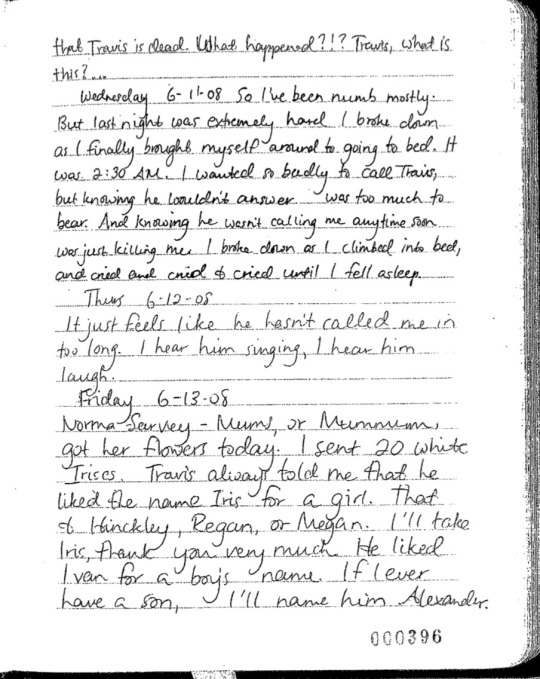 that Travis is dead. What happened?!? Travis, what is
this?...
Wednesday 6-11-08 So I've been numb mostly.
But last night was extremely hard I broke down
as I finally brought myself around to going to bed. It
was 2:30 AM. I wanted so badly to call Travis,
but knowing he wouldn't answer was too much to
bear. And knowing he wasn't calling me anytime soon
was just killing me. I broke down as I climbed into bed,
and cried and cried & cried until I fell asleep.
Thurs 6-12-08
It just feels like he hasn't called me in
too long. I hear him singing, I hear him
laugh.
Friday 6-13-08
Norma Sarvey - Mums, or Mumnum,
got her flowers today. I sent 20 white
Irises. Travis always told me that he
liked the name Iris for a girl. That
& Hinckley, Regan, or Megan. I'll take
Iris, thank you very much. He liked
Ivan for a boy's name. If I ever
have a son, I'll name him Alexander.
000396